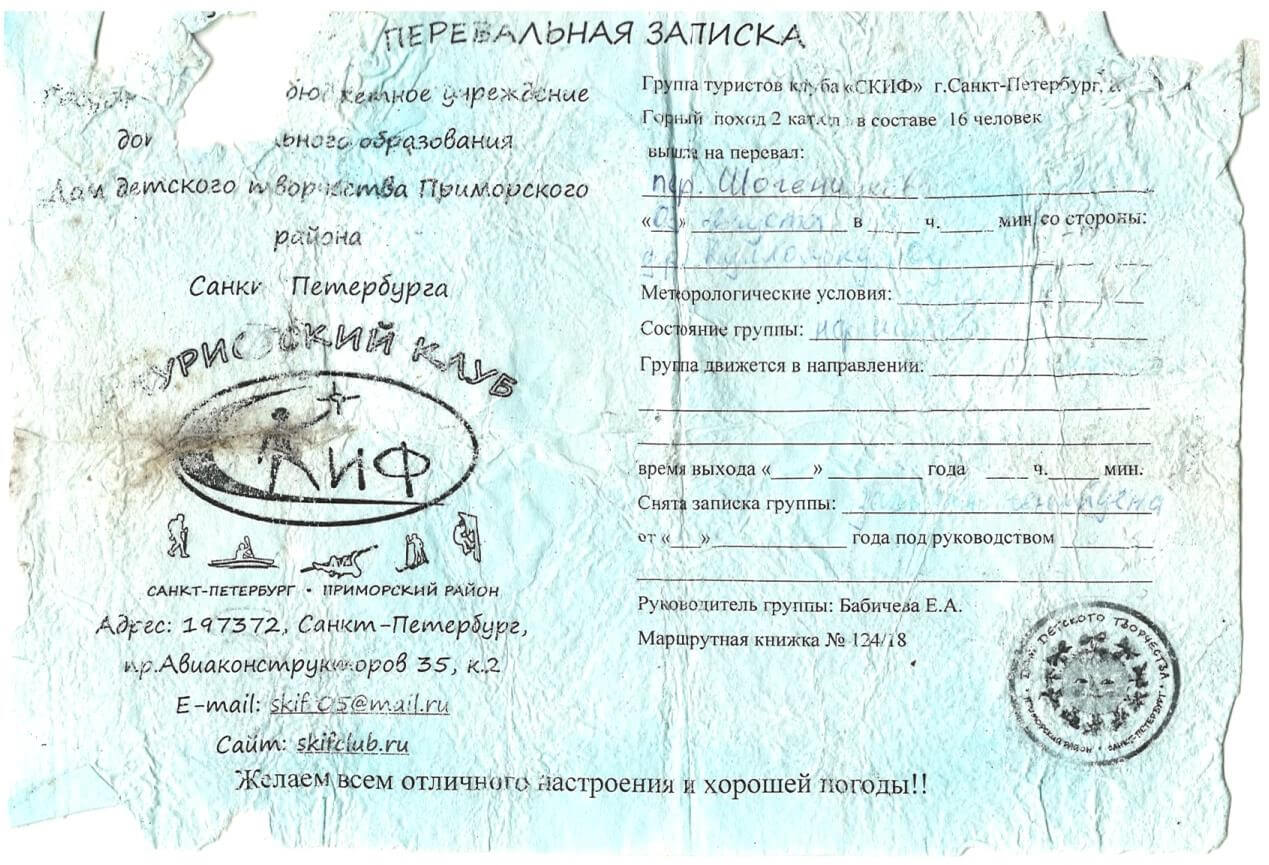 ПЕРЕВАЛЬНАЯ ЗАПИСКА
бюджетное учреждение
образования
Дом детского творчества Приморского
района
Санкт Петербурга
ТУРИСТСКИЙ КЛУБ
СКИФ
САНКТ-ПЕТЕРБУРГ • ПРИМОРСКИЙ РАЙОН
Адрес: 197372, Санкт-Петербург,
пр.Авиаконструкторов 35, к.2
E-mail: skif_05@mail.ru
Сайт: skifclub.ru
Группа туристов клуба «СКИФ» г.Санкт-Петербург,
Горный поход 2 кат.сл. в составе 16 человек
вышла на перевал:
пер.
«03» августа в ____ ч. ____ мин со стороны:
Меторологические условия:
Состояние группы:
Группа движется в направлении:
время выхода «___» ________ года ____ ч. ____ мин.
Снята записка группы:
от «___» ____________ года под руководством
Руководитель группы: Бабичева Е.А.
Маршрутная книжка № 124/18
ДОМ ДЕТСКОГО ТВОРЧЕСТВА
ПРИМОРСКИЙ РАЙОН • САНКТ-ПЕТЕРБУРГ
Желаем всем отличного настроения и хорошей погоды!!